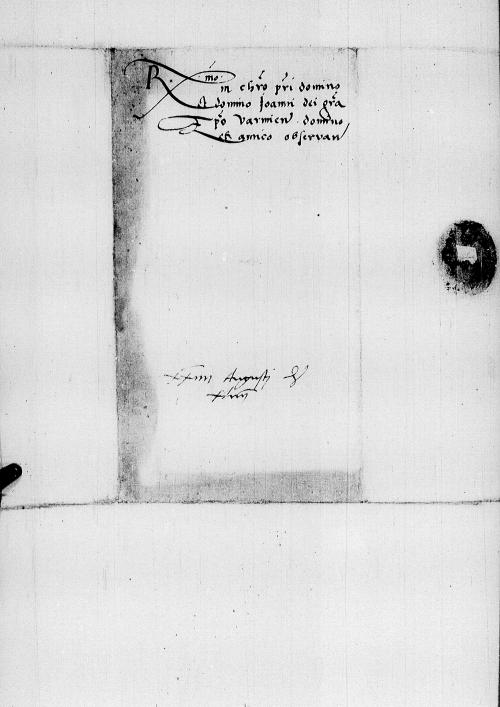 R. mo
in chro pri domino
et domino Joanni dei gra
epo Varmien domino
et amico observan
Augusti